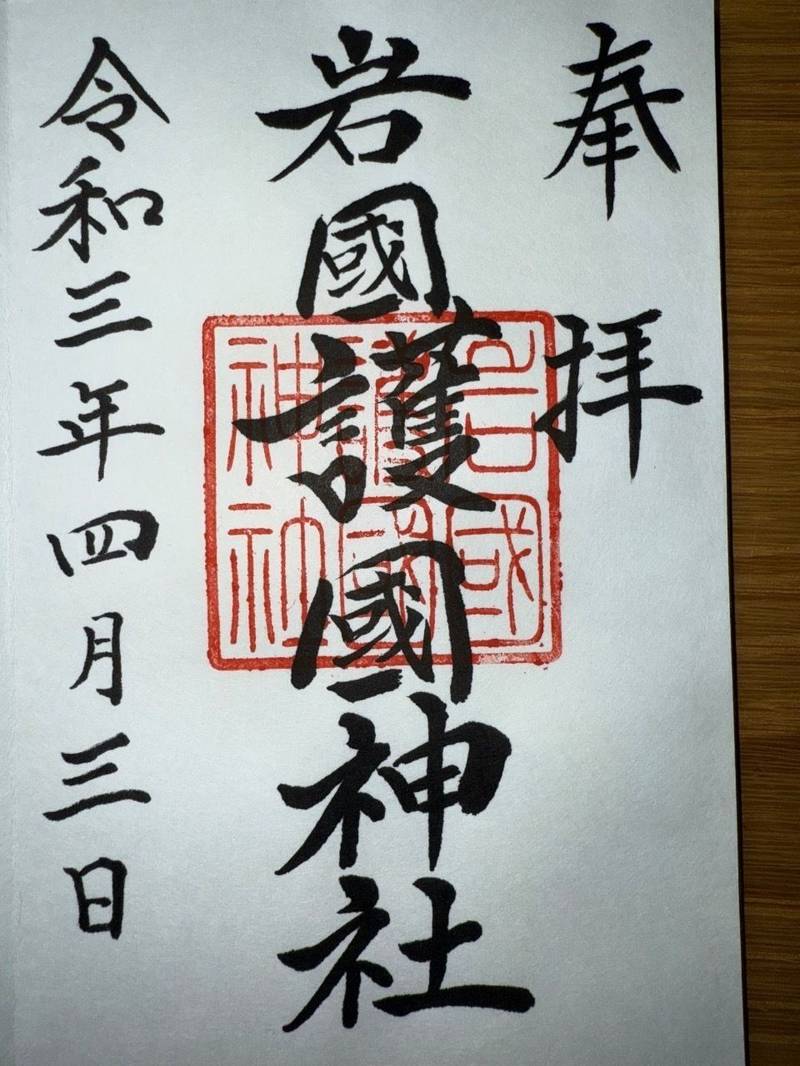 奉拝
岩國護國神社
岩國
護國
神社
令和三年四月三日